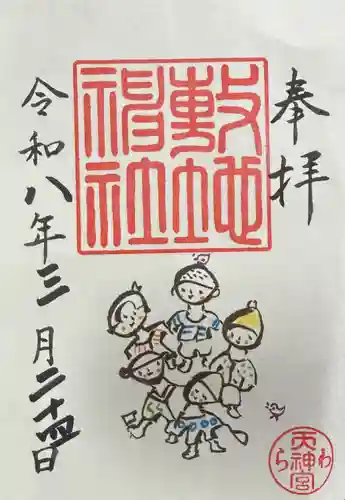 奉拝
敷地神社
令和八年三月二十四日
天神宮
わら